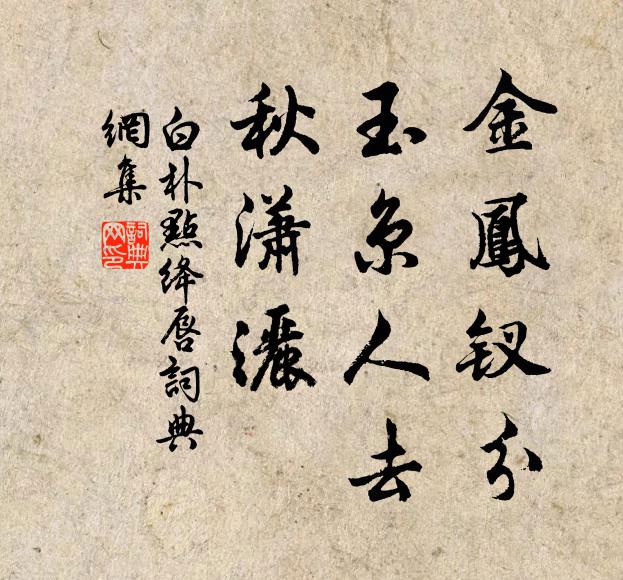 金鳳钗分
玉京人去
秋瀟灑
白朴點絳唇詞典
網集
詞典
网印